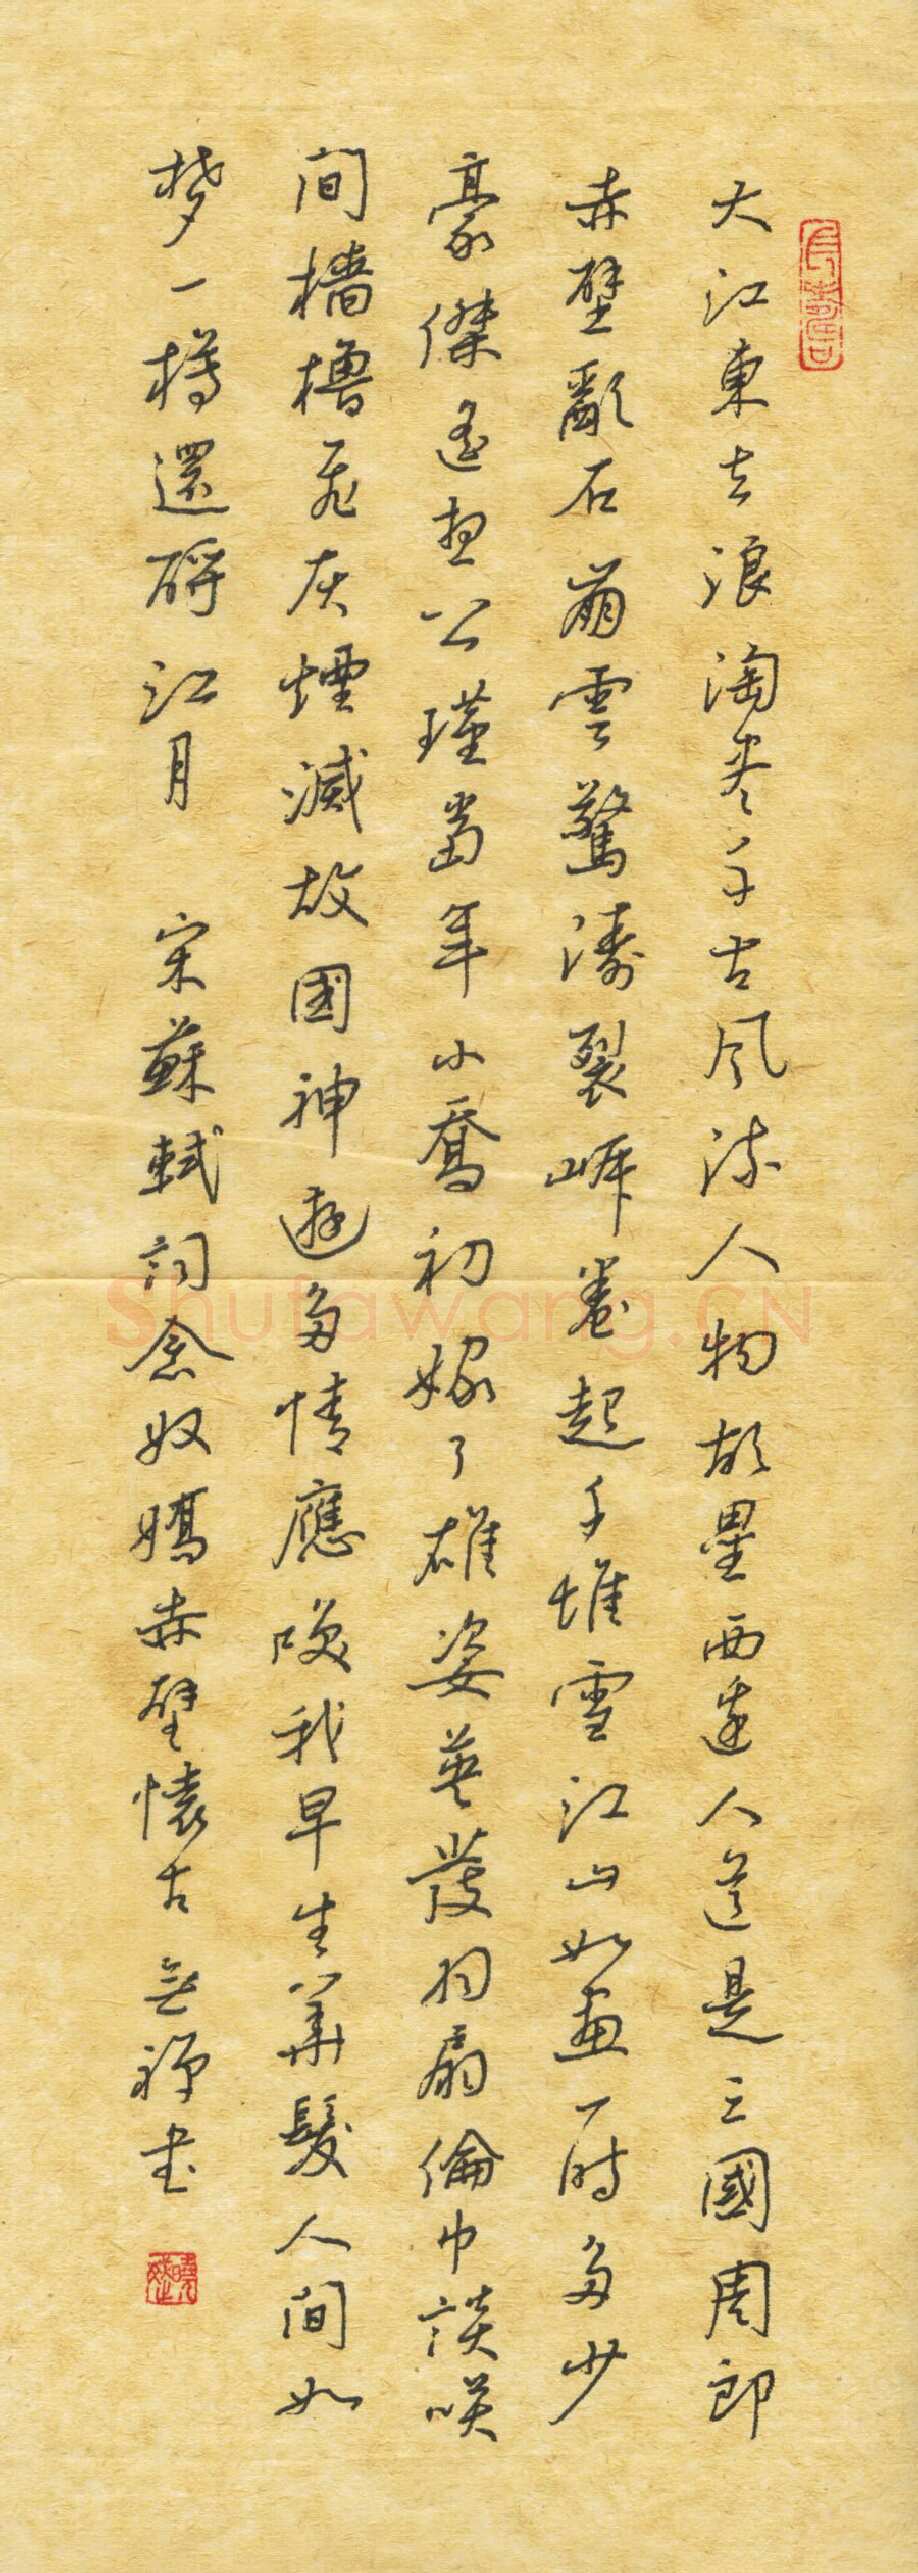 大江東去浪淘盡千古风流人物故壘西邊人道是三國周郎
赤壁亂石崩雲驚濤裂岸卷起千堆雪江山如畫一時多少
豪傑遙想公瑾當年小喬初嫁了雄姿英發羽扇綸巾談咲
間檣櫓飛灰煙滅故國神遊多情應咲我早生華髮人間如
梦一樽還酹江月 宋蘇軾詞念奴嬌赤壁懷古 無禪書
Shufawang.CN